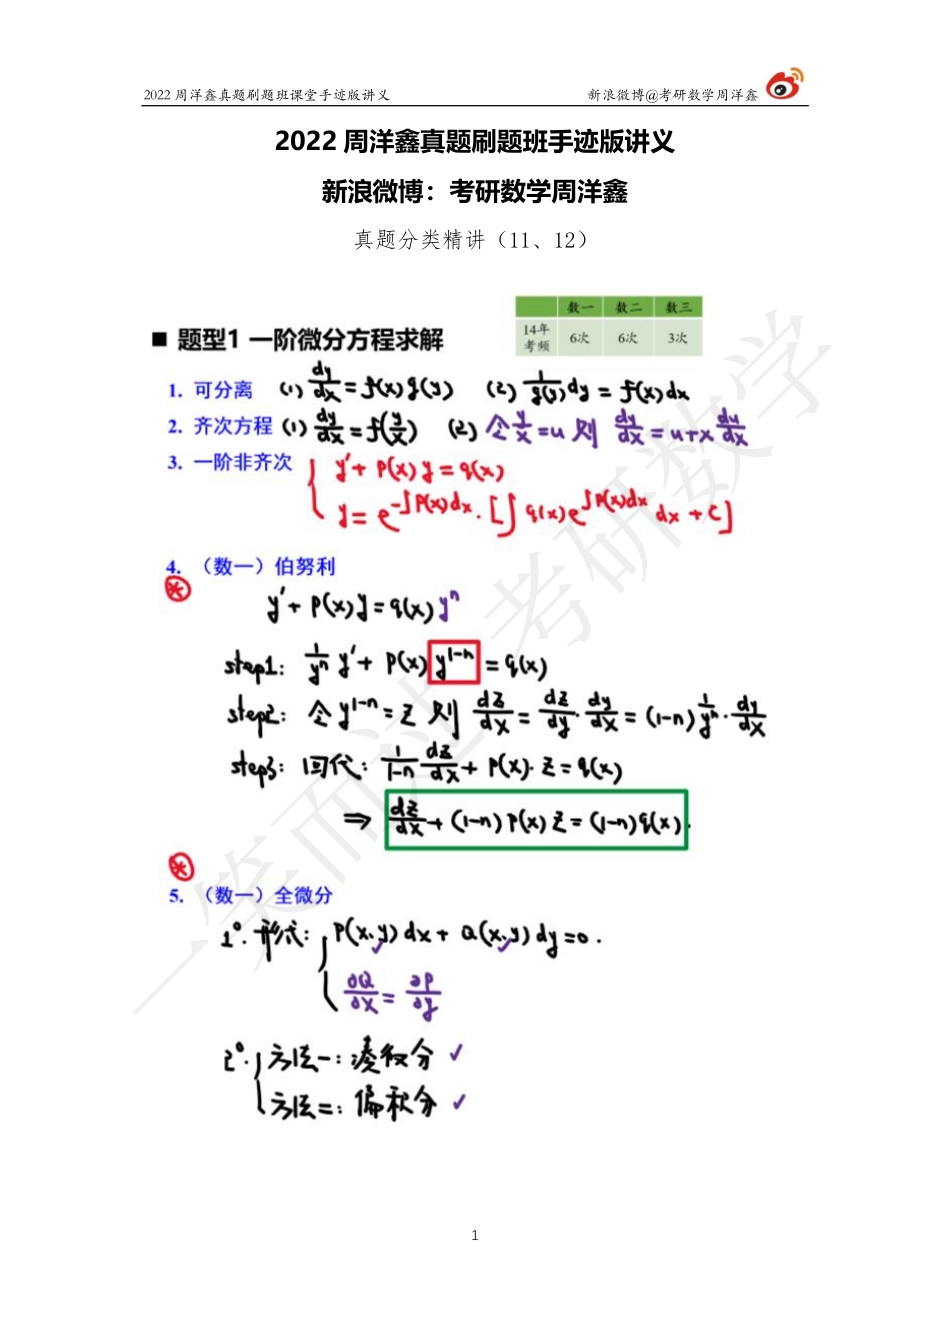 2022 周洋鑫真题刷题班课堂手迹版讲义 新浪微博@考研数学周洋鑫
2022 周洋鑫真题刷题班手迹版讲义
新浪微博：考研数学周洋鑫
真题分类精讲（11、12）
数一 数二 数三
14年考频 6次 6次 3次
■ 题型1 一阶微分方程求解
1. 可分离 (1) dy/dx = f(x)g(y) (2) 1/g(y) dy = f(x)dx
2. 齐次方程 (1) dy/dx = f(y/x) (2) 令 y/x = u 则 dy/dx = u+x du/dx
3. 一阶非齐次 { y′+ p(x)y = q(x)
y = e^{-∫p(x)dx}·[∫q(x)e^{∫p(x)dx}dx + C]
4. （数一）伯努利
y′+ p(x)y = q(x)yⁿ
step1: 1/yⁿ y′+ p(x) y^{1-n} = q(x)
step2: 令 y^{1-n} = z 则 dz/dx = dz/dy · dy/dx = (1-n) 1/yⁿ · dy/dx
step3: 回代: 1/(1-n) dz/dx + p(x)·z = q(x)
⇒ dz/dx + (1-n)p(x)z = (1-n)q(x).
5. （数一）全微分
1°. 形式: { P(x,y)dx + Q(x,y)dy = 0.
∂Q/∂x = ∂P/∂y
2°. { 方法一: 凑微分 ✓
方法二: 偏积分 ✓
一笑而过 考研数学
1